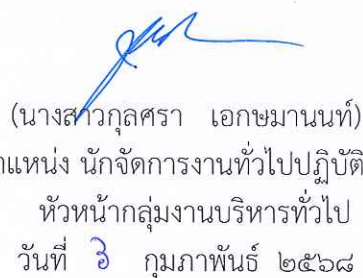 (นางสาวกุลศรา เอกษมานนท์)
ตำแหน่ง นักจัดการงานทั่วไปปฏิบัติ
หัวหน้ากลุ่มงานบริหารทั่วไป
วันที่ ๖ กุมภาพันธ์ ๒๕๖๘